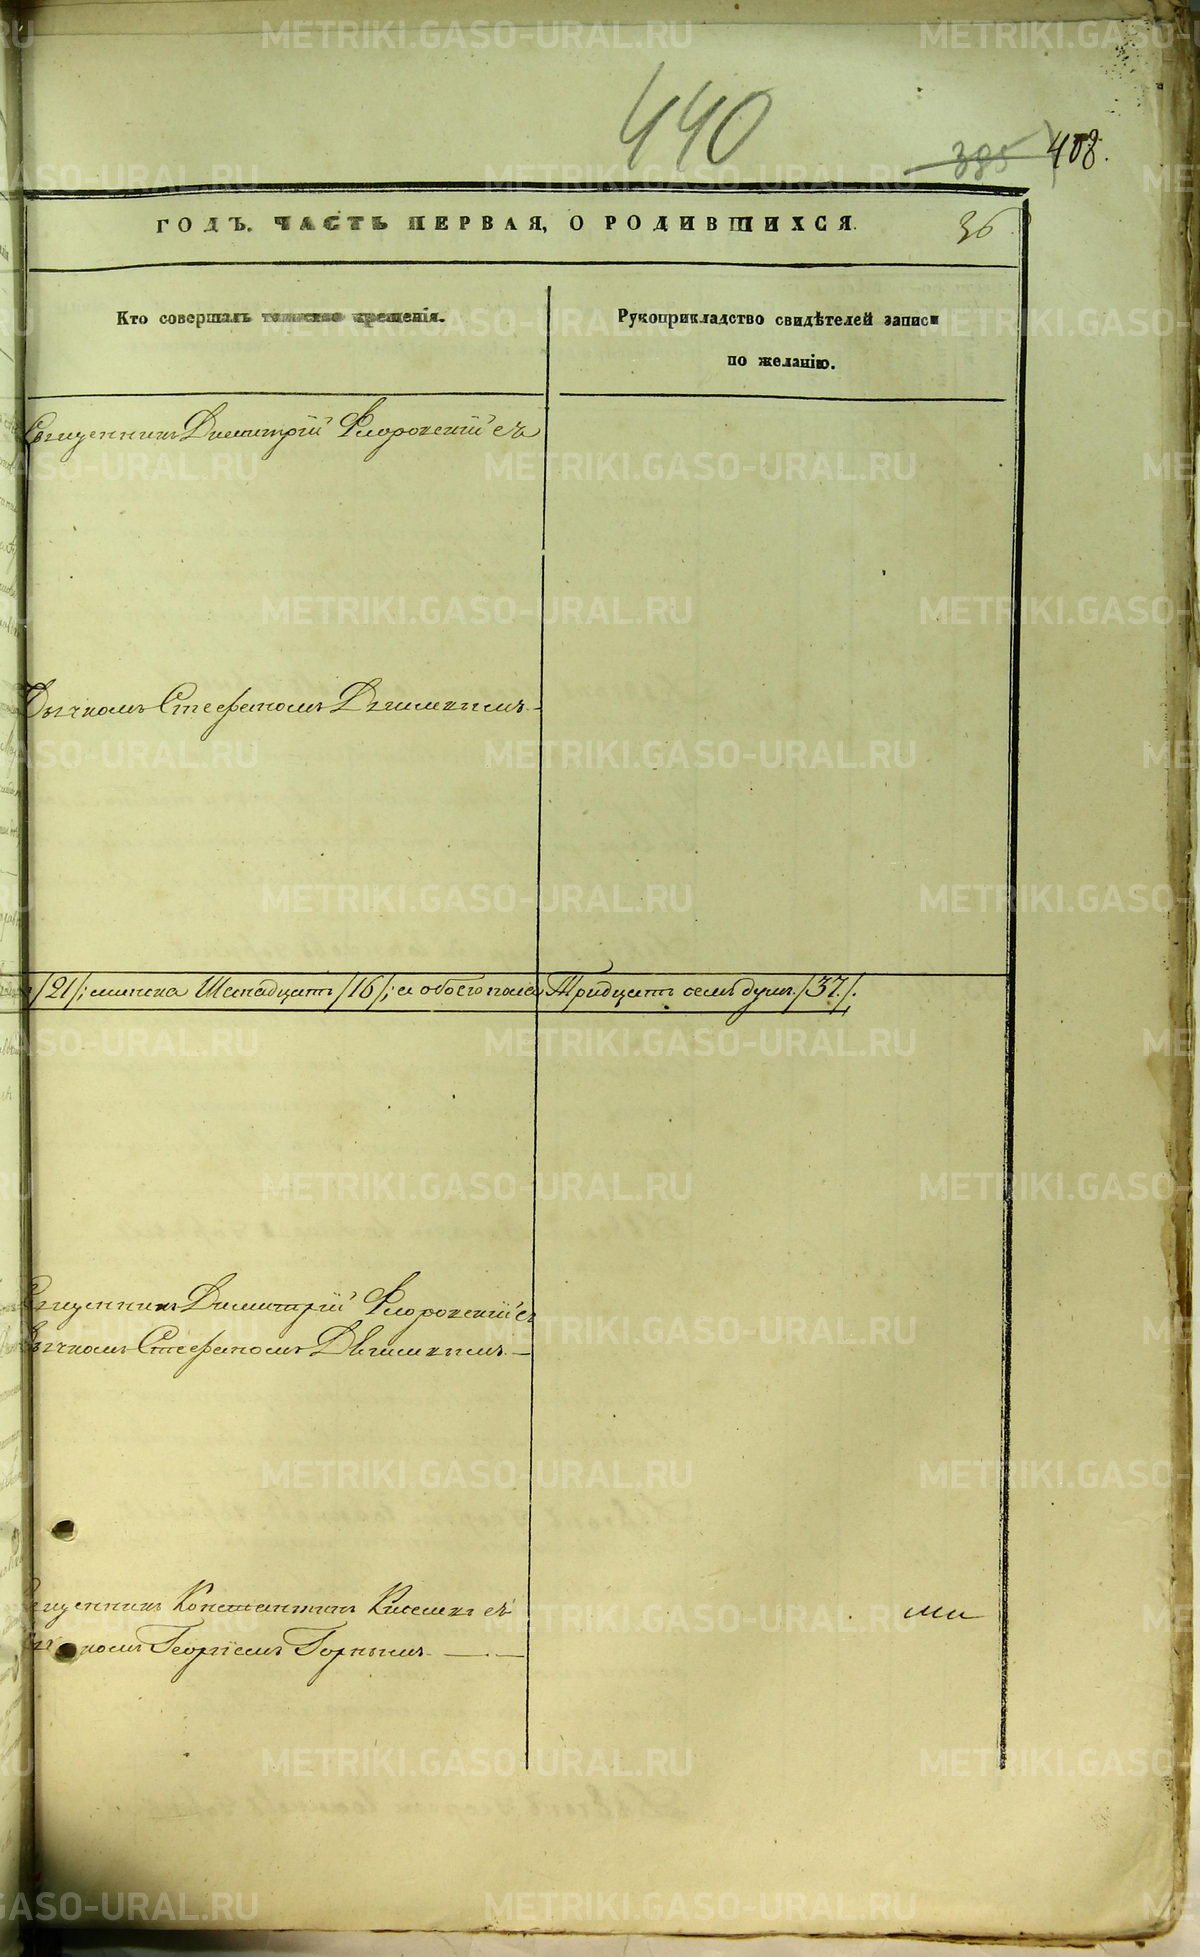 440
385 408.
ГОДЪ. ЧАСТЬ ПЕРВАЯ, О РОДИВШИХСЯ.
36
Кто совершалъ таинство крещенія.
Рукоприкладство свидѣтелей записи
по желанію.
Священникъ Димитрій Флоровскій съ
Дьячкомъ Стефаномъ
/21/; женска Шестнадцать /16/; а обоего пола Тридцать семь душъ. /37/.
Священникъ Димитрій Флоровскій съ
Дьячкомъ Стефаномъ
Священникъ Константинъ съ
Дьячкомъ Георгіемъ Горнымъ.
METRIKI.GASO-URAL.RU